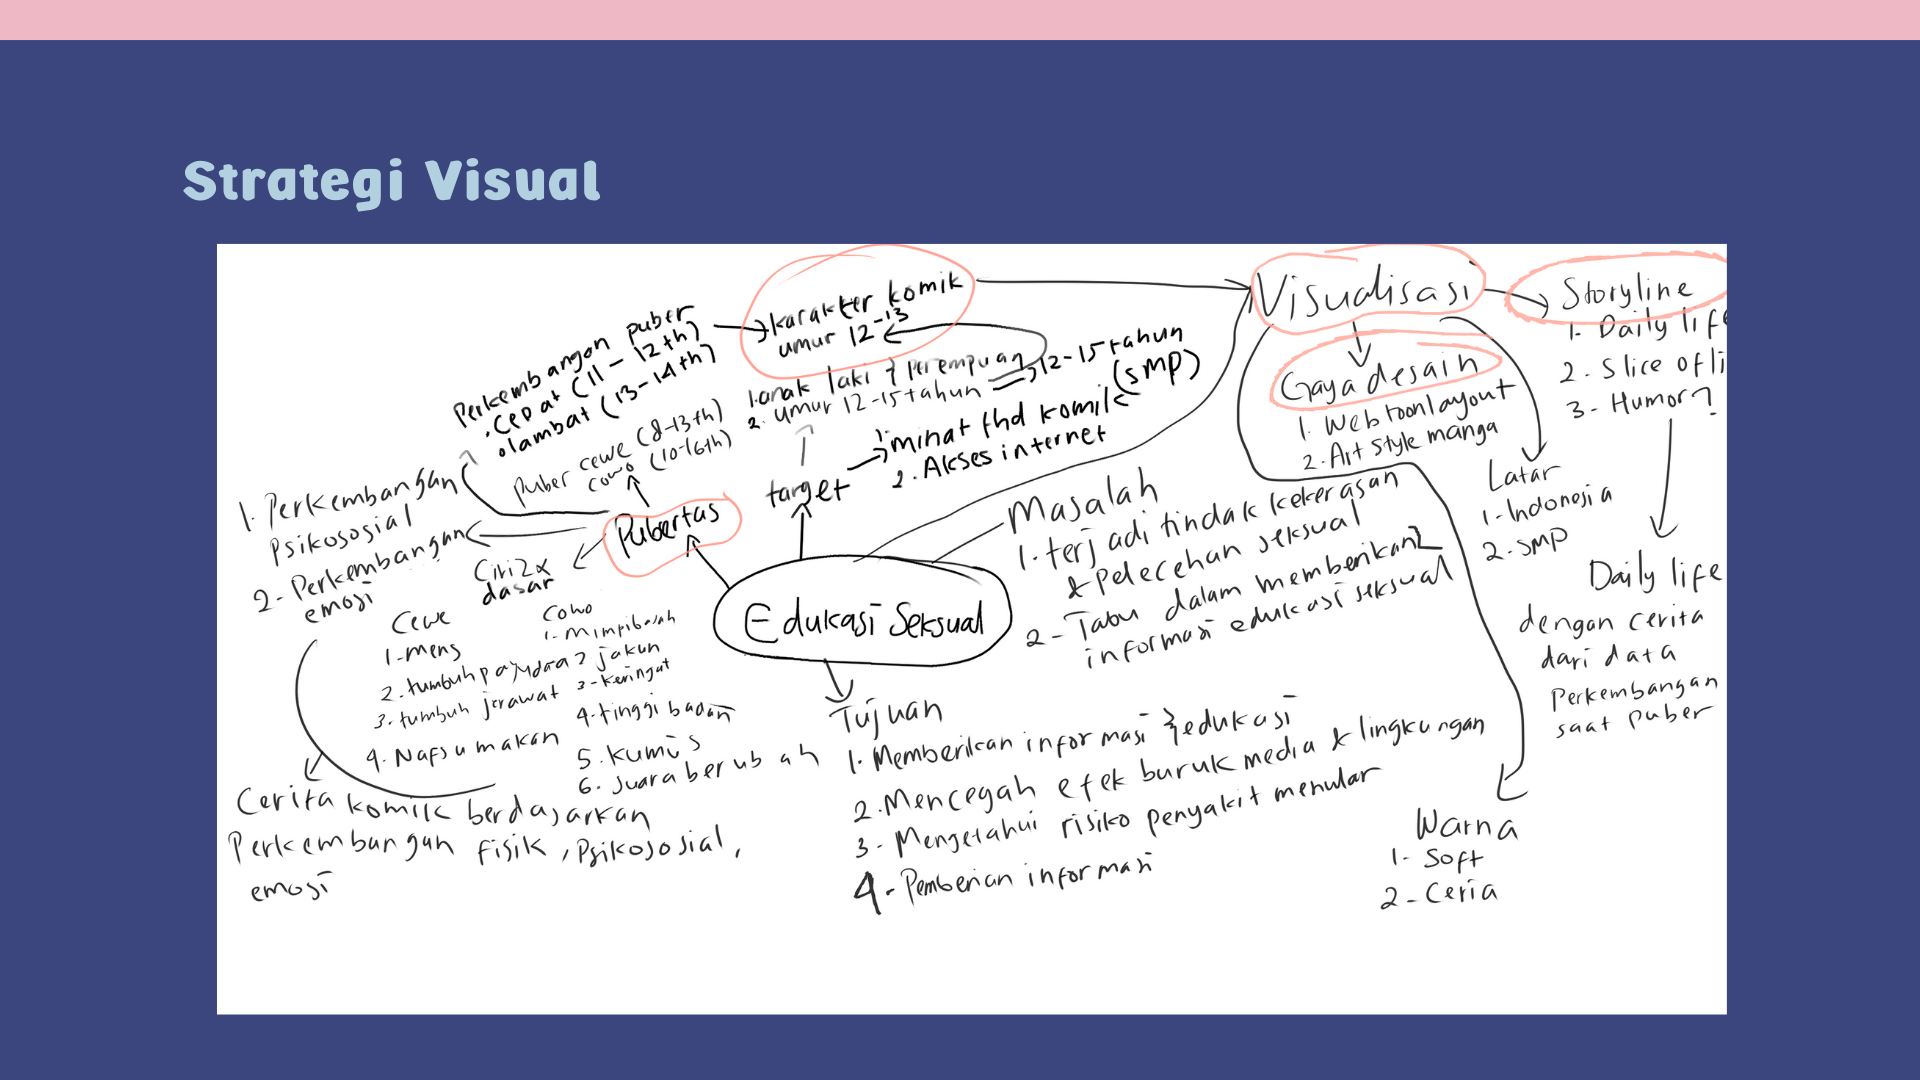 Strategi Visual
Perkembangan puber
.cepat (11 - 12 th)
.lambat (13-14 th)
karakter komik
umur 12-13
1.anak laki & perempuan
2. umur 12-15 tahun
12-15 tahun
(SMP)
1. minat thd komik
2. Akses internet
target
puber cewe (8-13th)
cowo (10-16th)
Pubertas
1. Perkembangan
psikososial
2- Perkembangan
emosi
Ciri2x
dasar
Cewe
1-mens
2. tumbuh payudara
3. tumbuh jerawat
4. Nafsu makan
Cowo
1-mimpi basah
2 jakun
3-keringat
4.tinggi badan
5. kumis
6. suara berubah
Cerita komik berdasarkan
Perkembangan fisik, Psikososial,
emosi
Edukasi Seksual
Masalah
1. terjadi tindak kekerasan
& pelecehan seksual
2- Tabu dalam memberikan
informasi edukasi seksual
Tujuan
1. Memberikan informasi & edukasi
2. Mencegah efek buruk media & lingkungan
3- Mengetahui risiko penyakit menular
4- Pemberian informasi
Visualisasi
Gaya desain
1. Webtoon layout
2. Art style manga
Latar
1-Indonesia
2. SMP
Warna
1- Soft
2- Ceria
Storyline
1- Daily life
2. Slice of li
3- Humor?
Daily life
dengan cerita
dari data
Perkembangan
saat puber